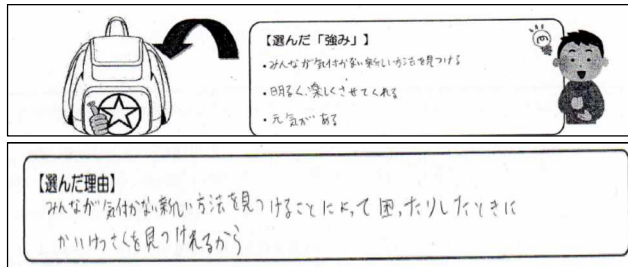 【選んだ「強み」】
・みんなが気付かない新しい方法を見つける
・明るく、楽しくさせてくれる
・元気がある
【選んだ理由】
みんなが気付かない新しい方法を見つけることによって困ったりしたときに
かいけつさくを見つけれるから